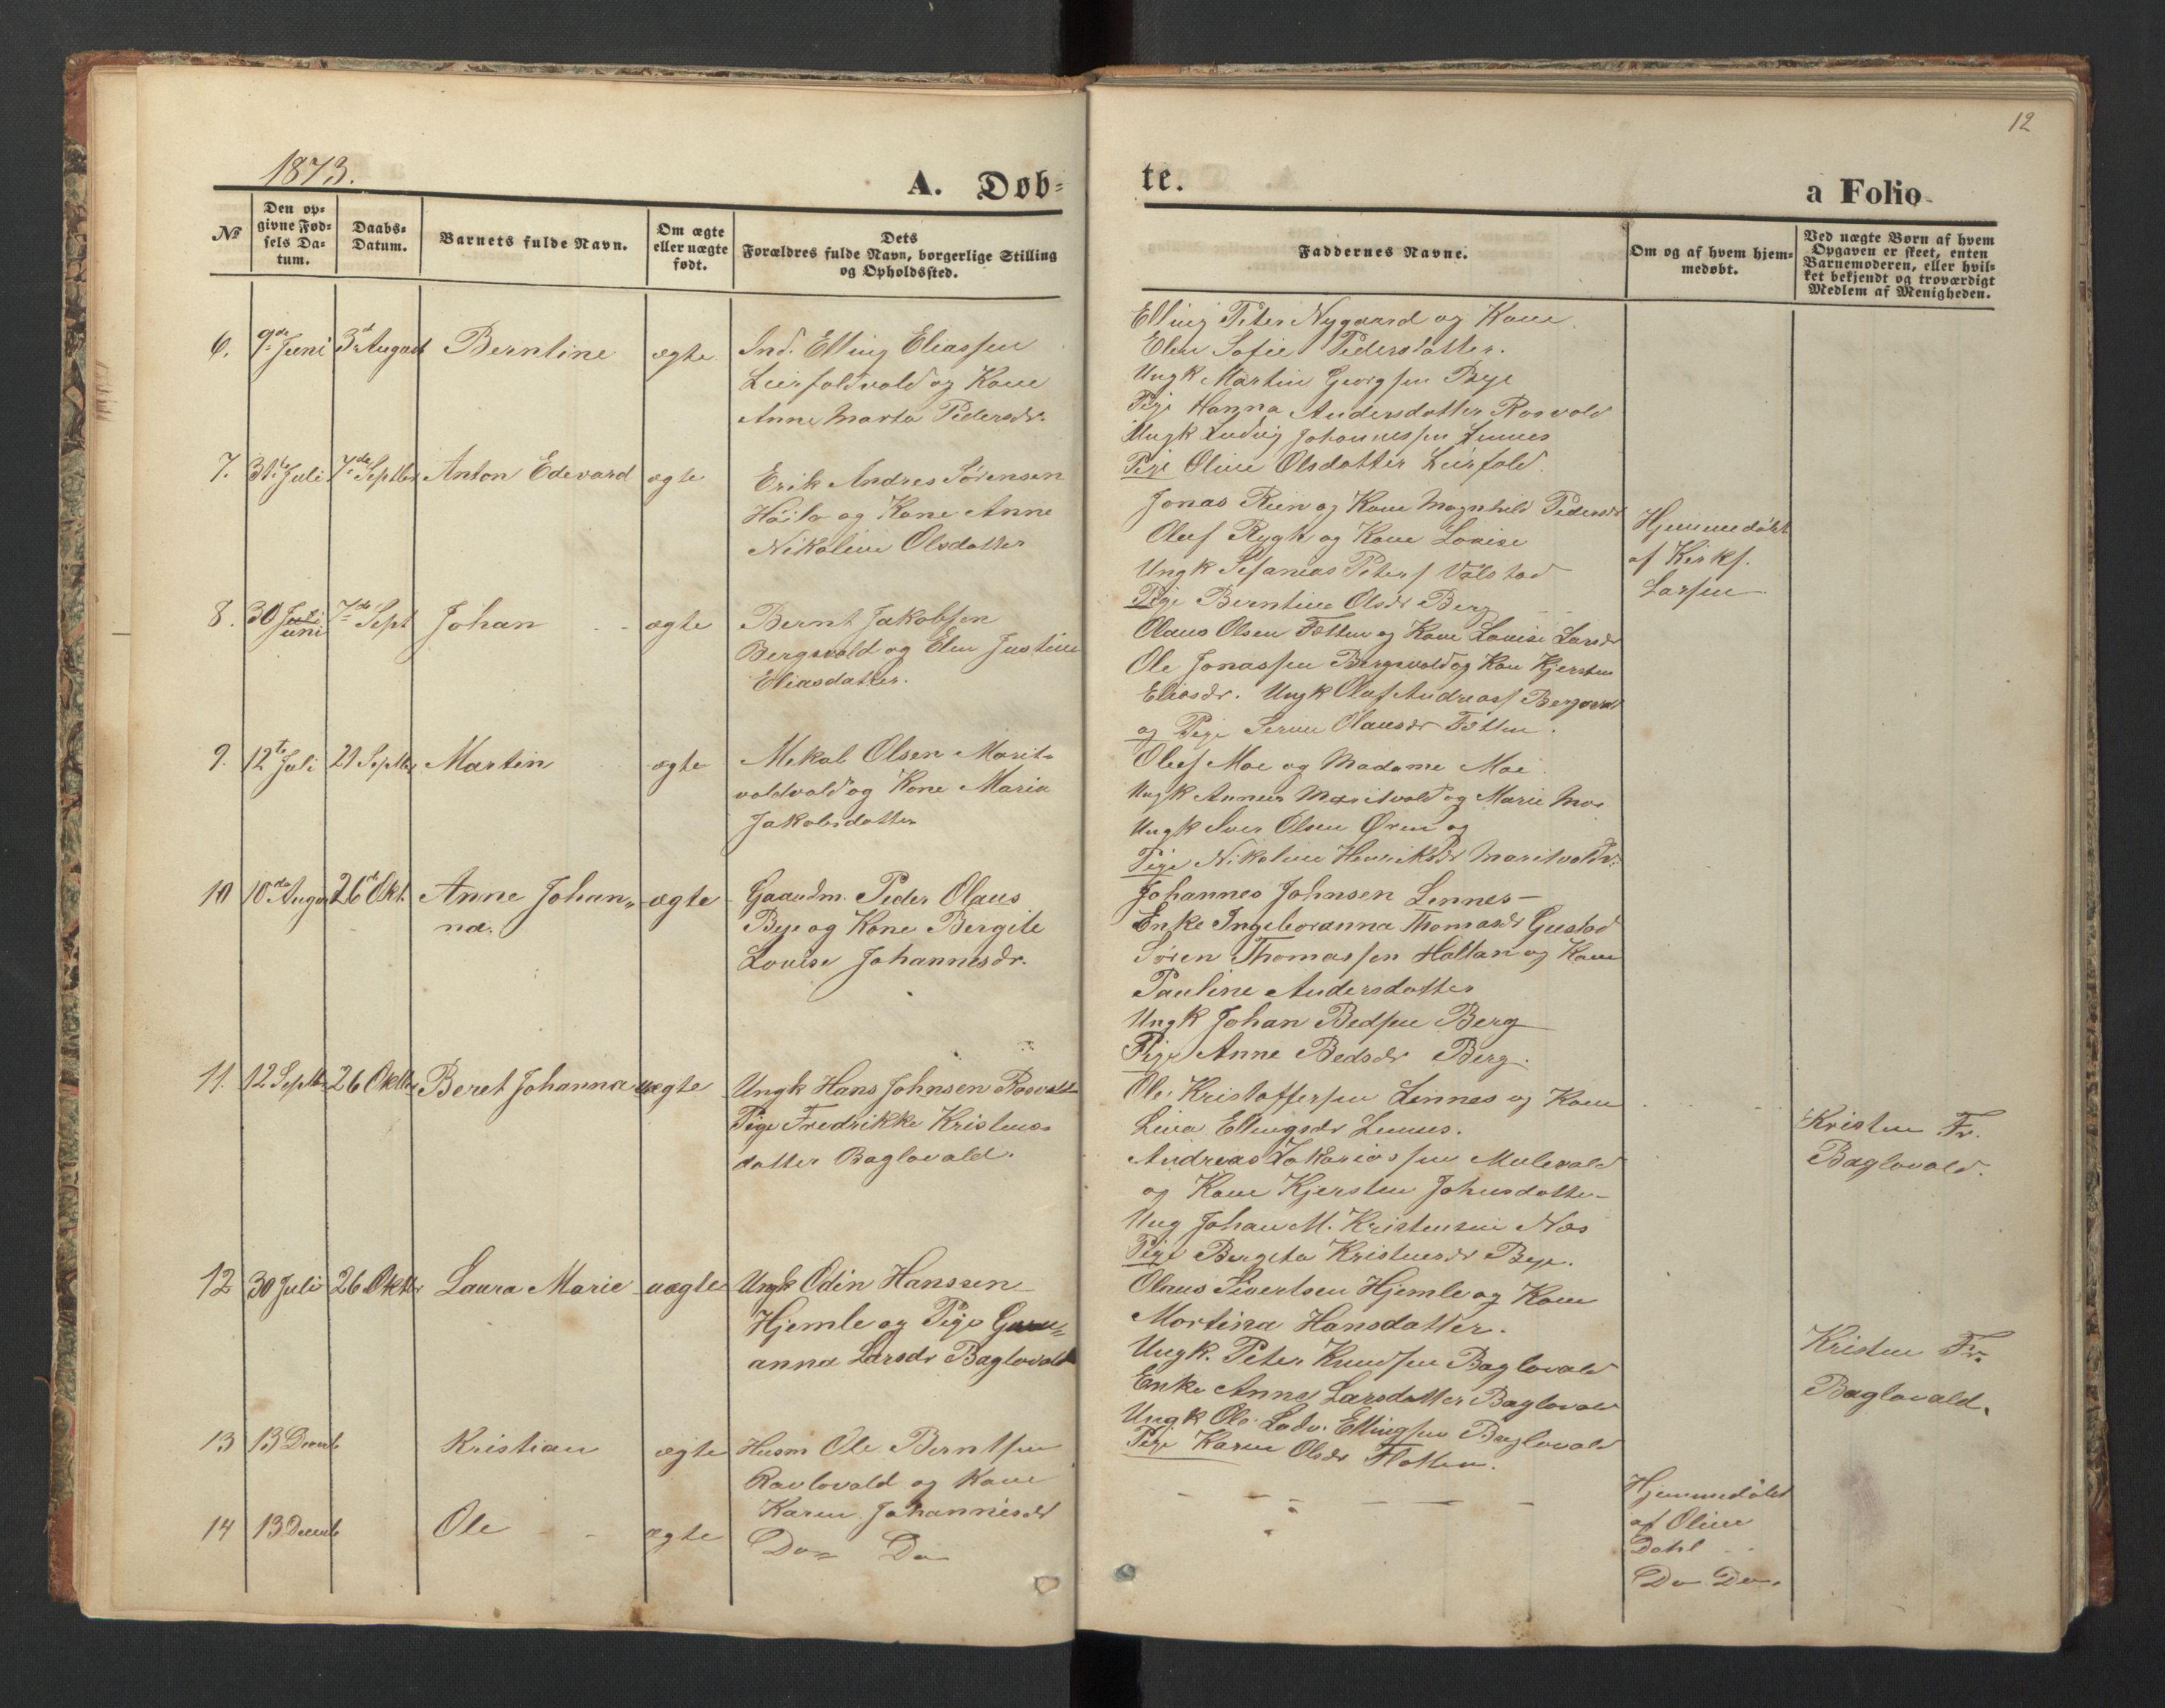 12
1873.
A. Døb=
te.
a Folio
№
Den op=
givne Fød=
sels Da=
tum.
Daabs=
Datum.
Barnets fulde Navn.
Om ægte
eller uægte
født.
Dets
Forældres fulde Navn, borgerlige Stilling
og Opholdssted.
Faddernes Navne.
Om og af hvem hjem=
medøbt.
Ved uægte Børn af hvem
Opgaven er skeet, enten
Barnemoderen, eller hvil=
ket bekjendt og troværdigt
Medlem af Menigheden.
6. 9de Juni 3d August Berntine ægte Ind. Elling Eliassen
Leirfaldvald og Kone
Anne Marta Pedersdr.
Elling Peter Nygaard og Kone
Elen Sofie Pedersdatter.
Ungk Martin Georgsen Bye
Pige Hanna Andersdatter Rosvold
Ungk Ludvig Johannessen Linnes
Pige Oline Olsdatter Leirfald.
7. 31te Juli 7de Septbr Anton Edevard ægte Erik Andres Sørensen
og Kone Anne
Nikoline Olsdatter
Jonas Rein og Kone Magnhild Pedersdr
Oluf Rygh og Kone Louise
Ungk Sefanias Peters Valstad
Pige Berntine Olsdr Berg
Hjemmedøbt
af Kirks.
Larsen
8. 30 Juli uni 7de Sept Johan ægte Bernt Jakobsen
Bergsvald og Elen Justine
Eliasdatter.
Olaus Olsen Fætten og Kone Louise Larsdr
Ole Jonassen Bergsvald og Kone Kjersten
Eliasdr. Ungk Oluf Andreass Bergsvald
og Pige Serine Olausdr Fætten.
9. 12te Juli 21 Septbr Martin ægte Mekal Olsen Marit=
valdvald og Kone Maria
Jakobsdatter
Oluf Moe og Madame Moe
Ungk Maritvold og Marie Moe
Ungk Olsen Øren og
Pige Nikoline Henriksdr Maritvoldv.
10 10de August 26de Okt. Anne Johan„ ægte Gaardm. Peder Olaus
na. Bye og Kone Bergite
Louise Johannesdr.
Johannes Johnsen Linnes
Enke Ingeboranna Thomasdr Gustad
Søren Thomassen Holtan og Kone
Pauline Andersdatter
Ungk Johan Bedsen Berg
Pige Anne Bedsdr Berg.
11. 12 Septbr 26 Oktbr Beret Johanna uægte Ungk Hans Johnsen Rosvold
Pige Fredrikke Kristens=
datter Baglovald.
Ole Kristoffersen Linnes og Kone
Lina Ellingsdr Linnes.
Andreas Zakariassen Mulevald
og Kone Kjersten Johnsdatter
Ung Johan M. Kristensen Næs
Pige Bergeta Kristensdr Bye.
Kristen Fr.
Baglovald.
12 30 Juli 26 Oktbr Laura Marie uægte Ungk Odin Hanssen
Hjemle og Pige
anna Larsdr Baglovald
Olaus Sivertsen Hjemle og Kone
Martina Hansdatter.
Ungk. Peter Knudsen Baglovald
Enke Anne Larsdatter Baglovald
Ungk Ole Ludv. Ellingsen Baglovald
Pige Karen Olsdr Flotten.
Kristen Fr.
Baglovald.
13 13 Decemb Kristian ægte Husm Ole Berntsen
Ravlovald og Kone
Karen Johannesdr
Hjemmedøbt
af Oline
Dahl
14 13 Decemb Ole ægte Do Do
Do Do.